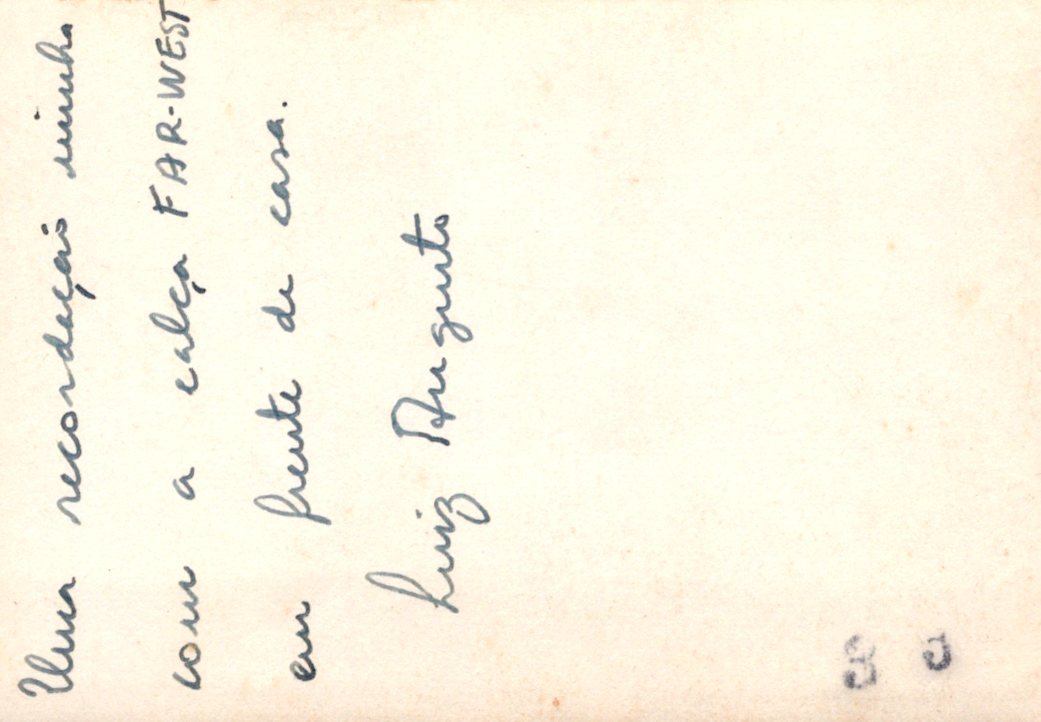 Uma recordação minha
com a calça FAR-WEST
em frente de casa.
Luiz Augusto